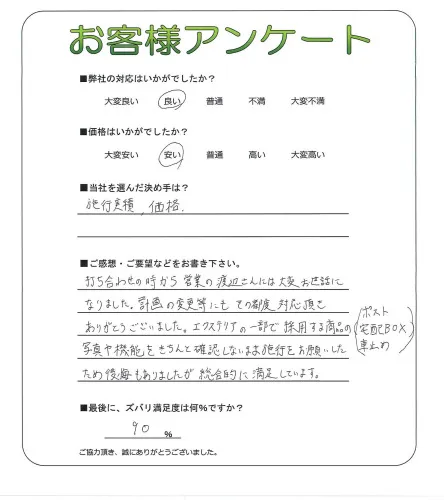 お客様アンケート
■弊社の対応はいかがでしたか？
大変良い 良い 普通 不満 大変不満
■価格はいかがでしたか？
大変安い 安い 普通 高い 大変高い
■当社を選んだ決め手は？
施行実積、価格.
■ご感想・ご要望などをお書き下さい。
打ち合わせの時から営業の渡辺さんには大変お世話に
なりました。計画の変更等にもその都度対応頂き
ありがとうございました。エクステリアの一部で採用する商品の(ポスト 宅配BOX 車止め)
写真や機能をきちんと確認しないまま施行をお願いした
ため後悔もありましたが総合的に満足しています。
■最後に、ズバリ満足度は何％ですか？
90 %
ご協力頂き、誠にありがとうございました。